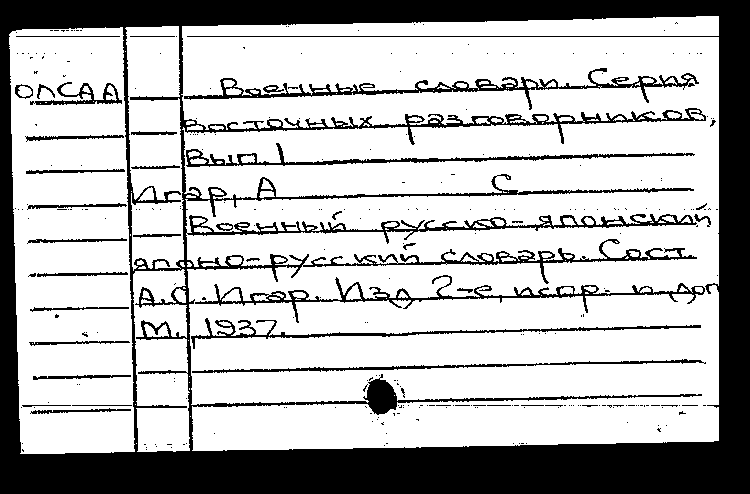 ОЛСАА Военные словари. Серия
восточных разговорников,
вып. 1
Игар, А С
Военный русско-японский
японо-русский словарь. Сост.
А.С. Игар. Изд 2-е, испр. и доп
М., 1937.